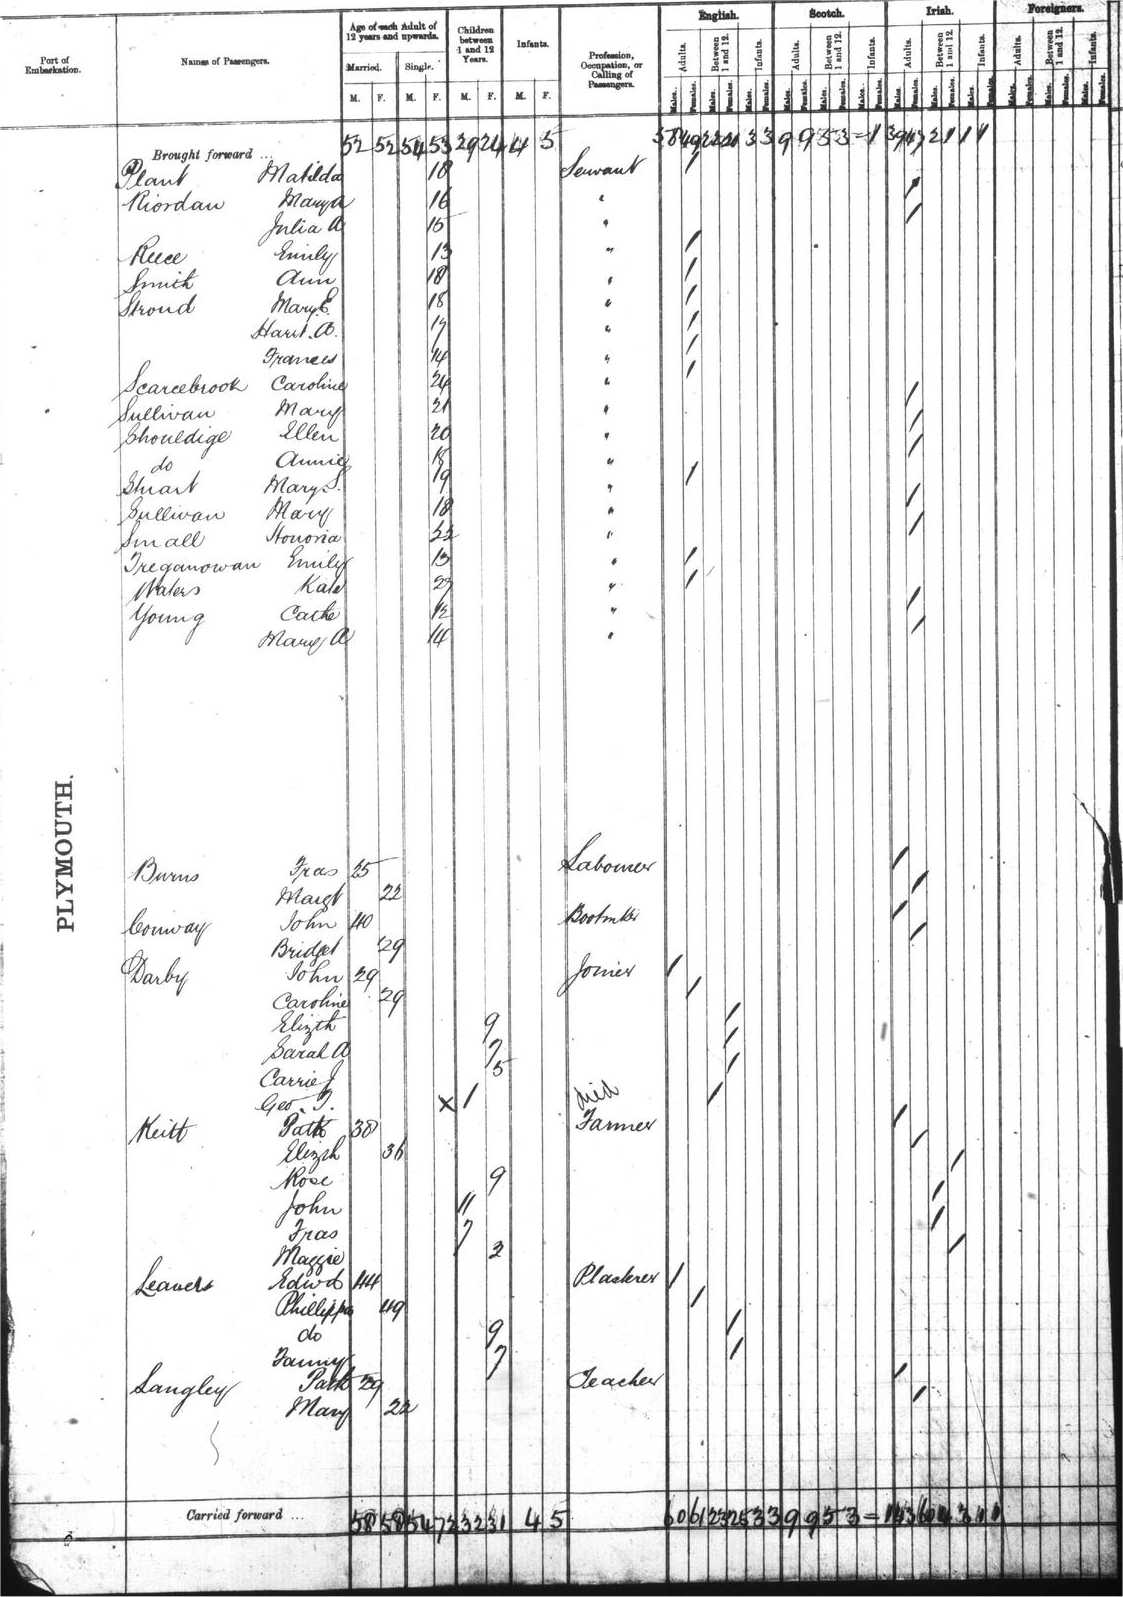 Port of Embarkation. Names of Passengers. Age of each Adult of 12 years and upwards. Children between 1 and 12 Years. Infants. Profession, Occupation, or Calling of Passengers. English. Scotch. Irish. Foreigners.
Married. Single. Adults. Between 1 and 12. Infants. Adults. Between 1 and 12. Infants. Adults. Between 1 and 12. Infants. Adults. Between 1 and 12. Infants.
M. F. M. F. M. F. M. F. Males. Females. Males. Females. Males. Females. Males. Females. Males. Females. Males. Females. Males. Females. Males. Females. Males. Females. Males. Females. Males. Females. Males. Females.
Brought forward ... 52 52 54 53 29 24 4 5 58 49 22 21 3 3 9 9 5 3 - 1 39 47 2 1 1 1
Plant Matilda 18 Servant 1
Riordan Mary A 16 " 1
Julia A 15 " 1
Reece Emily 13 " 1
Smith Ann 18 " 1
Stroud Mary E. 18 " 1
Hart. A. 17 " 1
Frances 14 " 1
Scarcebrook Caroline 24 " 1
Sullivan Mary 21 " 1
Shouldige Ellen 20 " 1
do Annie 18 " 1
Stuart Mary S. 19 " 1
Sullivan Mary 18 " 1
Small Honoria 22 " 1
Treganowan Emily 13 " 1
Waters Kate 27 " 1
Young Cathe 12 " 1
Mary A 14 " 1
PLYMOUTH.
Burns Fras 25 Labourer 1
Margt 22 1
Conway John 40 Bootmkr 1
Bridget 29 1
Darby John 29 Joiner 1
Caroline 29 1
Elizth 9 1
Sarah A 7 1
Carrie J 5 1
Geo. T. x 1 died 1
Keitt Patk 38 Farmer 1
Elizth 36 1
Rose 9 1
John 11 1
Fras 7 1
Maggie 2 1
Leavers Edwd 44 Plasterer 1
Phillippa 49 1
do 9 1
Fanny 7 1
Langley Patk 29 Teacher 1
Mary 22 1
Carried forward ... 58 58 54 72 32 31 4 5 60 61 23 26 3 3 9 9 5 3 - 1 43 60 4 3 1 1